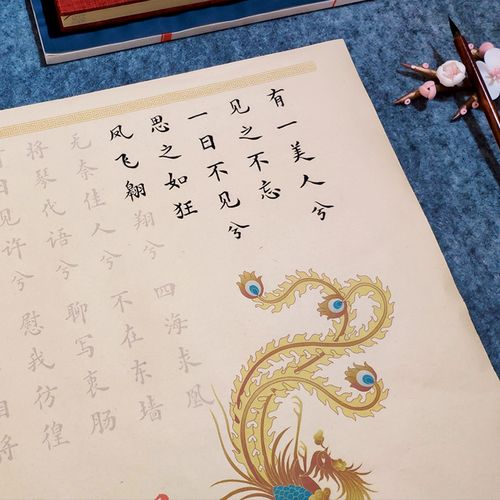 有一美人兮
见之不忘
一日不见兮
思之如狂
凤飞翱翔兮 四海求凰
无奈佳人兮 不在东墙
将琴代语兮 聊写衷肠
日见许兮 慰我彷徨
将